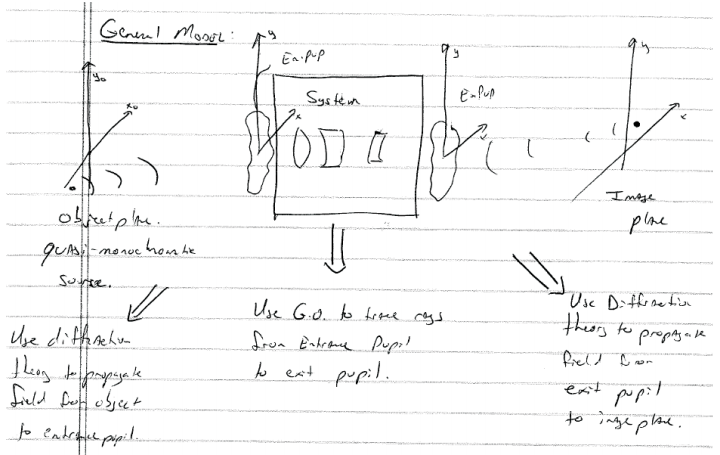 General Model:
y
En.pup
y
y
y₀
System
x₀
x
En Pup
x
x
Object plane.
quasi-monochromatic
source.
Image
plane
Use diffraction
theory to propagate
field from object
to entrance pupil.
Use G.O. to trace rays
from Entrance Pupil
to exit pupil.
Use Diffraction
theory to propagate
field from
exit pupil
to image plane.